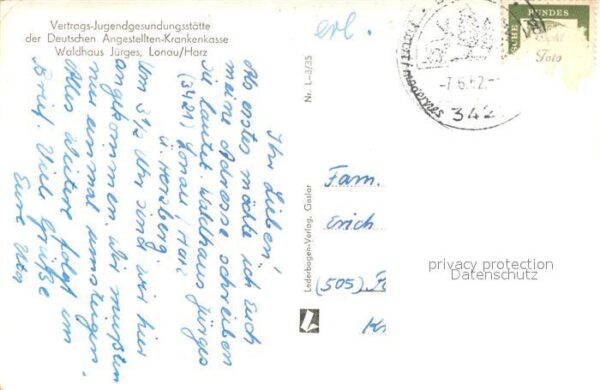 Vertrags-Jugendgesundungsstätte
der Deutschen Angestellten-Krankenkasse
Waldhaus Jürges, Lonau/Harz
erl.
Ihr Lieben!
Als erstes möchte ich Euch
meine Adresse schreiben
Sie lautet: Waldhaus Jürges
(3421) Lonau / Harz
ü. Herzberg
Um 3½ Uhr sind wir hier
angekommen. Wir mußten
nur einmal umsteigen.
Alles Weitere folgt im
Brief. Viele Grüße
Eure
Nr. L-3/35
Lederbogen-Verlag, Goslar
BUNDES
342
Fam.
Erich
(505)
privacy protection
Datenschutz